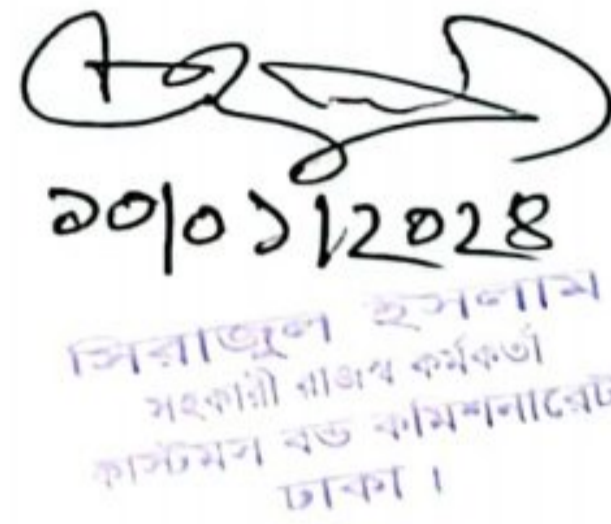 ১০/০১/২০২৪
সিরাজুল ইসলাম
সহকারী রাজস্ব কর্মকর্তা
কাস্টমস বন্ড কমিশনারেট
ঢাকা।